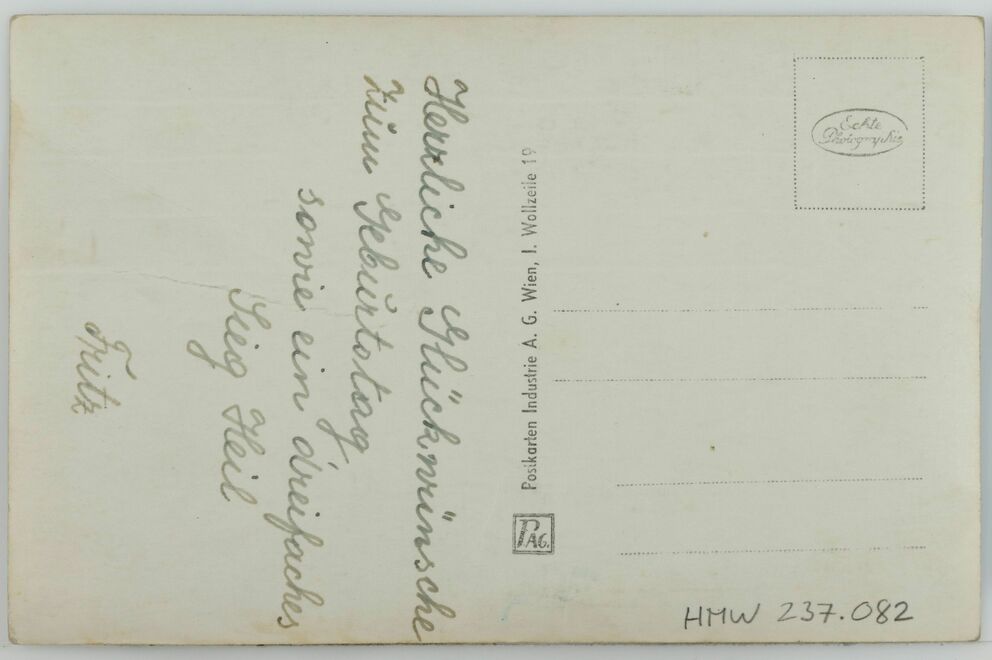 Herzliche Glückwünsche
zum Geburtstag
sowie ein dreifaches
Sieg Heil
Fritz
Postkarten Industrie A. G. Wien, I. Wollzeile 19
PAG.
Echte
Photographie
HMW 237.082